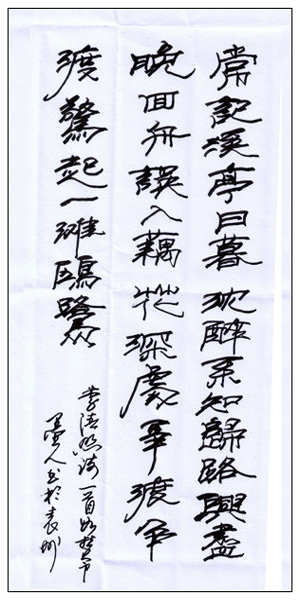 常記溪亭日暮沈醉不知歸路興盡
晚回舟誤入藕花深處爭渡爭
渡驚起一灘鷗鷺
李清照词一首如梦令
人书於袁州